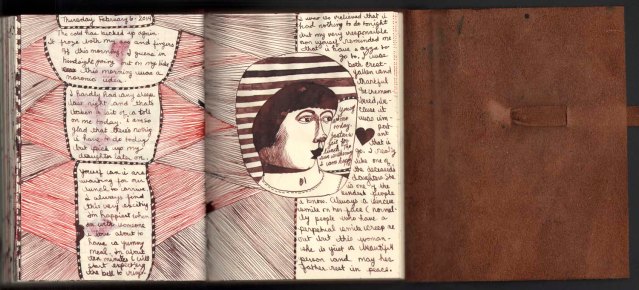 Thursday, February 6. 2014
The cold has picked up again.
It froze both my ears and fingers
off this morning. I guess in
hindsight going out on my bike
this morning was a
moronic idea.
I hardly had any sleep
last night and that's
taken a bit of a toll
on me today. I am so
glad that there's nothing
I have to do today
but pick up my
daughter later on.
Yousri and I are
waiting for our
lunch to arrive.
I always find
this very exciting.
I'm happiest when
I'm with someone
I love about to
have a yummy
meal. In about
ten minutes I will
start expecting
the bell to ring.
I was so relieved that I
had nothing to do tonight
but my very responsible
son Yousri reminded me
that I have a
to go to. I was
both
fallen and
thankful
he remem
bered, be
cause it
was im
port
ant
that I
go. I really
like one of
the deceased's
daughters. She
is one of the
kindest people
I know. Always a sincere
smile on her face (normal
ly people who have a
perpetual smile creep me
out but this woman-
she is just a beautiful
person) and may her
father rest in peace.